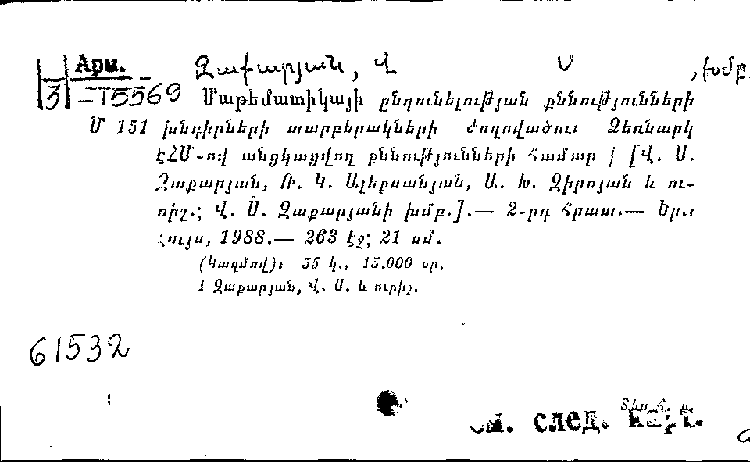 Арм. Զաքարյան, Վ Ս , խմբ.
3 -T5569 Մաթեմատիկայի ընդունելության քննությունների
Մ 151 խնդիրների տարբերակների ժողովածու: Ձեռնարկ
ԷՀՄ-ով անցկացվող քննությունների համար / [Վ. Ս.
Զաքարյան, Թ. Կ. Ալեքսանյան, Ա. Խ. Զիրոյան և ու-
րիշ.; Վ. Ս. Զաքարյանի խմբ.].— 2-րդ հրատ.— Եր.:
Լույս, 1988.— 263 էջ; 21 սմ.
(Կազմով): 55 կ., 15.000 օր.
1 Զաքարյան, Վ. Ս. և ուրիշ.
61532
См. след. карт.